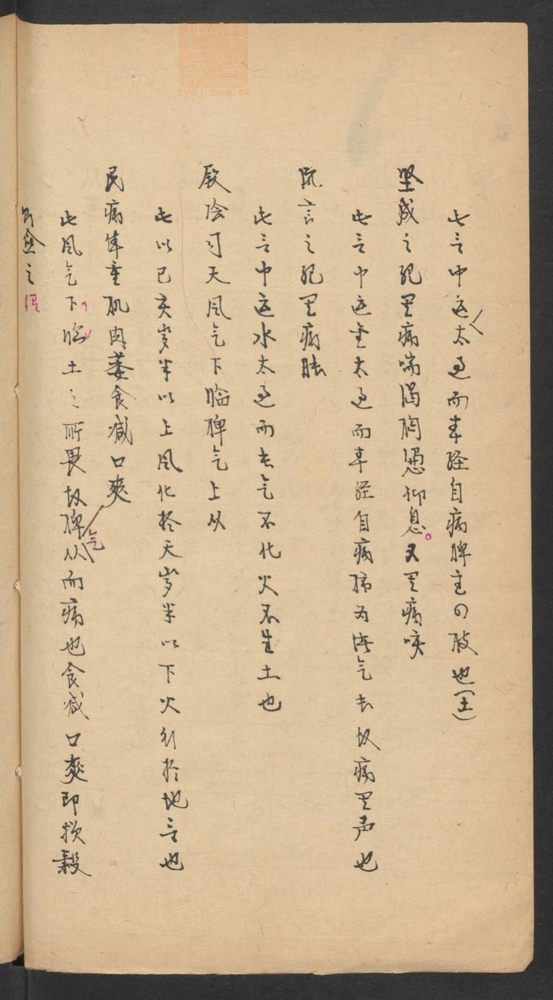 此言中运太过而本经自病脾主四肢也(土)
坚成之纪其病喘渴胸凭仰息。又其病咳
此言中运金太过而本经自病肺为 气 故病其声也
流言之纪其病胀
此言中运水太过而 气不化火不生土也
厥阴司天风气下临脾气上从
此以巳亥岁半以上风化于天岁半以下火行于地言也
民病体重肌肉萎食减口爽
此风气下临土之所畏故脾气从而病也食减口爽即损谷